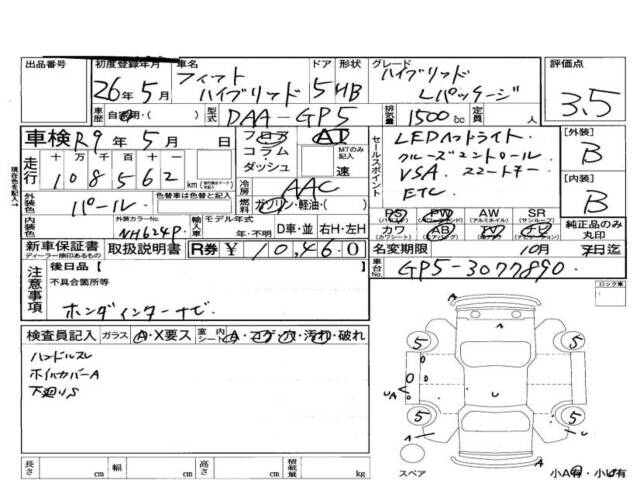 出品番号 初度登録年月 車名 ドア 形状 グレード 評価点
26年5月 フィット ハイブリッド 5 HB ハイブリッド Lパッケージ 3.5
車歴 自家用・( ) 型式 DAA-GP5 排気量 1500cc 定員 人
車検 R9年5月 日 フロア コラム・ ダッシュ AT MTのみ記入 速
走行 十万千百十一
108562 km
冷房 AAC
外装色 パール 色替車は色替と記入 燃料 ガソリン・軽油・( )
内装色 外装カラーNo. NH624P 輸入車 モデル年式 年・不明 D車・並 右H・左H
セールスポイント
LEDヘッドライト.
クルーズコントロール
VSA. スマートキー
ETC
[外装] B
[内装] B
PS PW AW SR
(パワステ) (パワーウィンドウ) (アルミホイル) (サンルーフ)
カワ AB TV
(カワシート) (エアバッグ)
純正品のみ丸印
新車保証書 取扱説明書 R券 ¥10,460
ディーラー捺印あるもの
名変期限 10月 日迄
車台No. GP5-3077890.
現在色を記入→
注意事項
後日品 [ ]
不具合箇所等
ホンダインターナビ
ロック車
検査員記入 ガラス A・X要ス 室内シート A・コゲ・穴・汚れ・破れ
ハンドルスレ
ホイルカバーA
下廻りS
A
U
5 5
A
U
UA
U A
5 5
U
A
スペア
小A有・小U有
長さ cm 幅 cm 高さ cm 積載量 kg